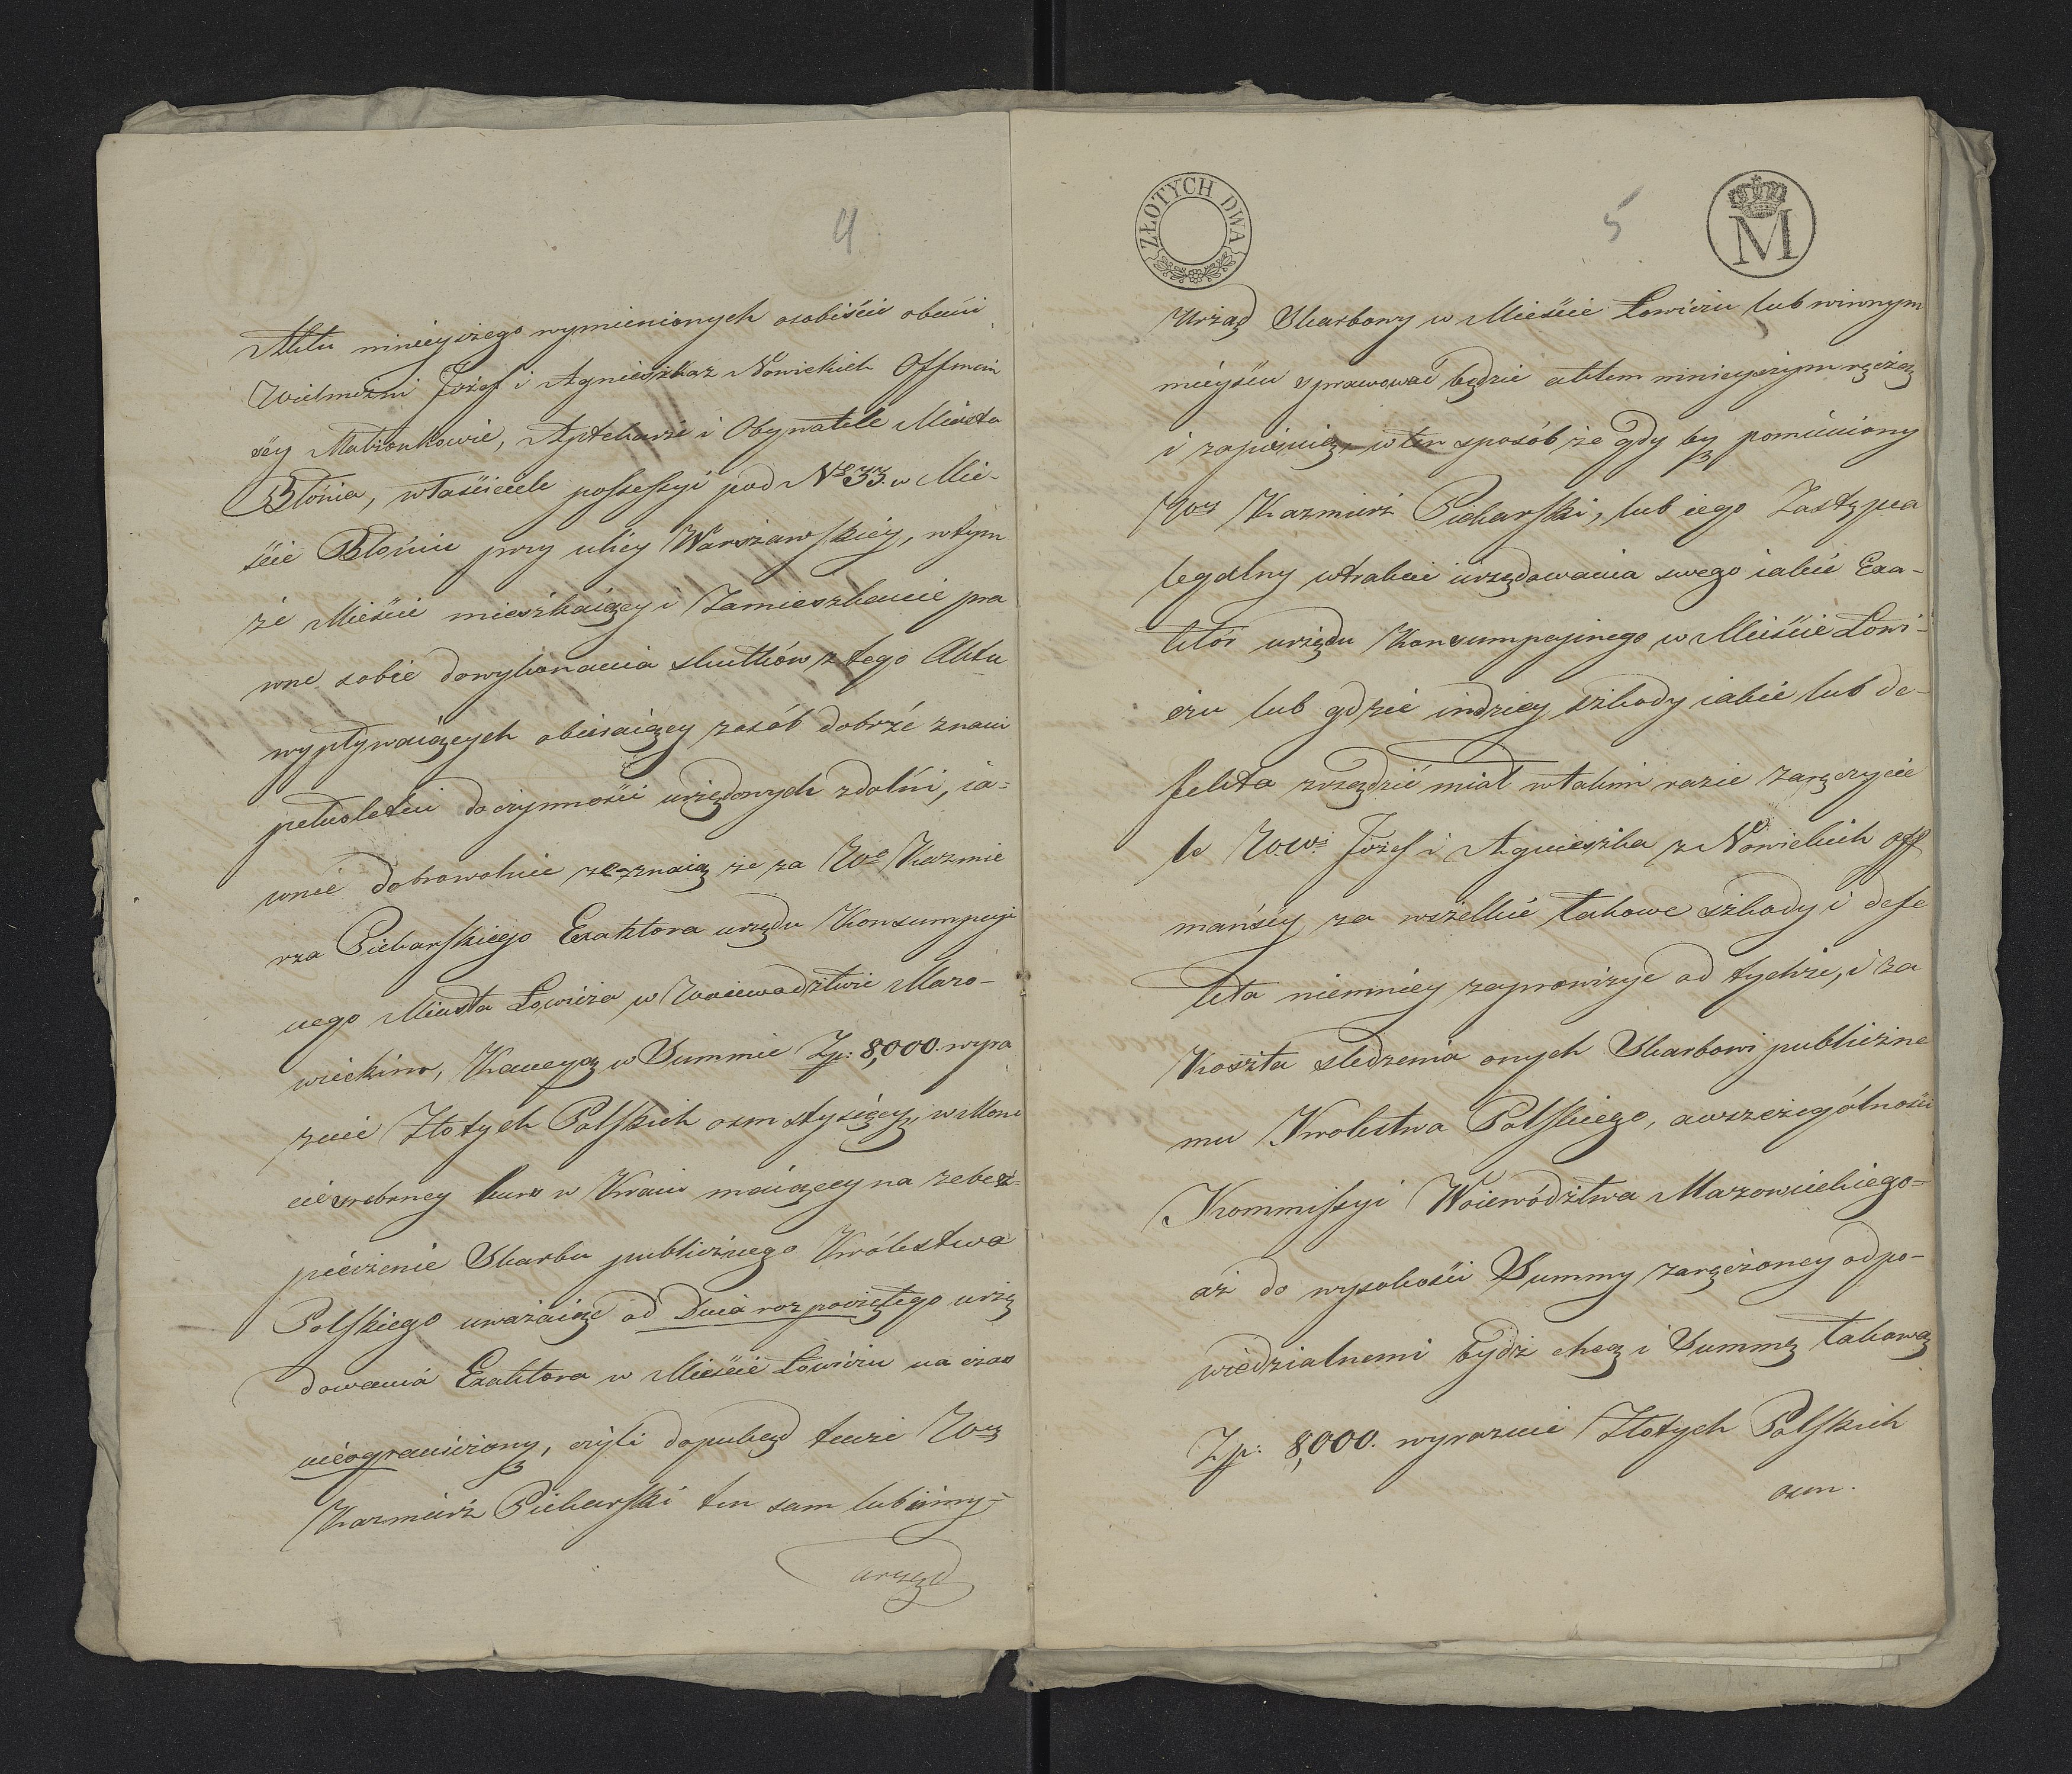 4
Aktu ninieyszego wymienionych osobiście obecni
Wielmożni Józef i Agnieszka z Nowickich Offmań
scy Małżonkowie, Aptekarze i Obywatele Miasta
Błonia, właściciele possessyi pod No 33. w Mie-
ście Błoniu przy ulicy Warszawskiey, w tym
że Mieście mieszkaiący i Zamieszkanie pra
wne sobie do wykonania skutków z tego Aktu
wypływaiących obieraiący z osób dobrze znani
pełnoletni do czynności urzędowych zdolni, ia-
wnie dobrowolnie zeznaią że za Wo Kazmie
rza Piekarskiego Exaktora urzędu Konsumpcyi
nego Miasta Łowicza w Woiewodztwie Mazo-
wieckim, Kaucyą w Summie Zp: 8,000. wyra
znie Złotych Polskich osm tysięcy, w Mone
cie srebrney kurs w Kraiu maiącey na zebez-
pieczenie Skarbu publicznego Królestwa
Polskiego uważaiąc od Dnia rozpoczętego urzę
dowania Exaktora w Mieście Łowiczu na czas
nieograniczony, czyli dopukąd tenże Wny
Kazmierz Piekarski ten sam lub inny-
urząd
ZŁOTYCH DWA
5
M
Urząd Skarbowy w Mieście Łowiczu lub w innym
mieyscu sprawować będzie aktem ninieyszym ręczą
i zapisuią, w ten sposób że gdy by pomieniony
Wny Kazmierz Piekarski, lub iego Zastępca
legalny w trakcie urzędowania swego iakie Exa-
któr urzędu Konsumpcyinego w Mieście Łowi-
czu lub gdzie indziey szkody iakie lub de-
fekta zrządzić miał w takim razie zaręczycie
le W.Wni Józef i Agnieszka z Nowickich Off
mańscy za wszelkie takowe szkody i defe
kta niemniey za prowizye od tychże, i za
Koszta sledzenia onych Skarbowi publiczne
mu Krolestwa Polskiego, a w szczególności
Kommissyi Woiewództwa Mazowieckiego-
aż do wysokości Summy zaręczoney odpo-
wiedzialnemi bydź chcą i Summę takową
Zp: 8,000. wyraznie Złotych Polskich
osm.